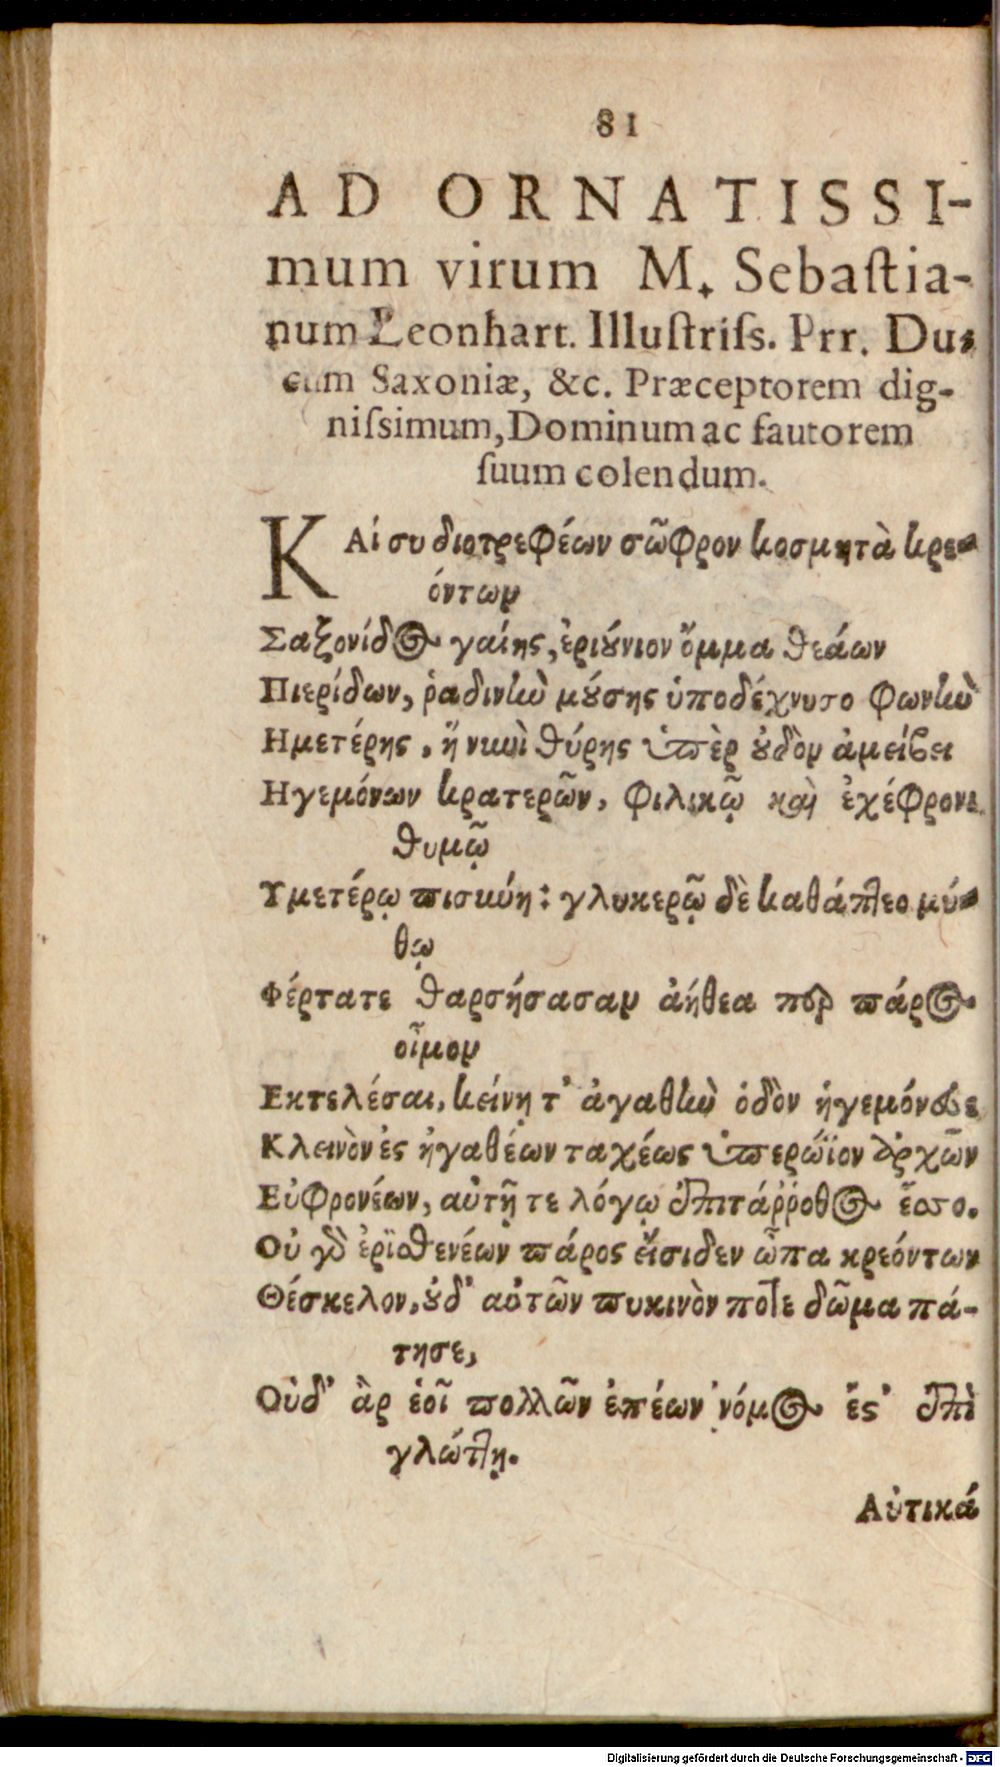 81
AD ORNATISSI-
mum virum M. Sebaſtia-
num Leonhart. Illuſtriſs. Prr. Du-
cum Saxoniæ, &c. Præceptorem dig-
niſsimum, Dominum ac fautorem
ſuum colendum.
ΚΑί συ διοτρεφέων σῶφρον κοσμητὰ κρε-
όντων
Σαξονίδος γαίης, ἐριούνιον ὄμμα θεάων
Πιερίδων, ῥαδινὴν μούσης ὑποδέχνυσο φωνὴν
Ημετέρης, ἥ νυνὶ θύρης ὑπὲρ οὐδὸν ἀμείβει
Ηγεμόνων κρατερῶν, φιλικῷ καὶ ἐχέφρονι
θυμῷ
Υμετέρῳ πισύνη: γλυκερῷ δὲ καθάπτεο μύ-
θῳ
Φέρτατε θαρσήσασαν ἀήθεα περ πάρος
οἶμον
Εκτελέσαι, κείνῃ τ' ἀγαθὴν ὁδὸν ἡγεμόνευε
Κλεινὸν ἐς ἠγαθέων ταχέως ὑπερώϊον ἀρχῶν
Εὐφρονέων, αὐτῇ τε λόγῳ ἐπιτάῤῥοθος ἔσσο.
Οὐ γὰρ ἐρισθενέων πάρος εἴσιδεν ὦπα κρεόντων
Θέσκελον, οὐδ' αὐτῶν πυκινὸν ποτε δῶμα πά-
τησε,
Οὐδ' ἂρ ἑοῖ πολλῶν ἐπέων νόμος ἔστ' ἐπὶ
γλώττῃ.
Αὐτικά
Digitalisierung gefördert durch die Deutsche Forschungsgemeinschaft - DFG